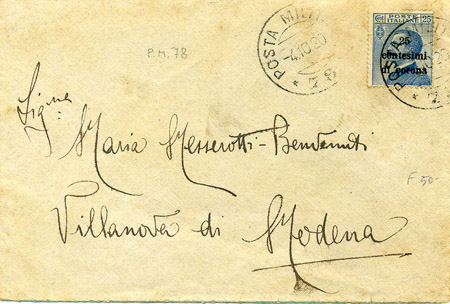 P.M. 78
POSTA MILI
-4.10.20
* 78
POSTE ITALIANE
Ct 25
25
centesimi
di corona
POSTA
* 78
Sig.na
Maria Messerotti-Benvenuti
F 50-
Villanova di Modena